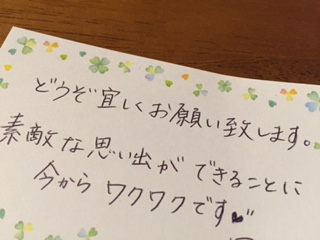 どうぞ宜しくお願い致します。
素敵な思い出ができることに
今からワクワクです♥